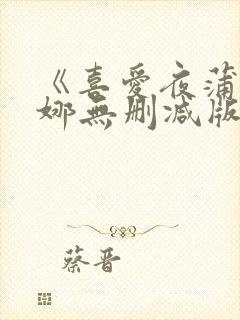 《喜愛夜蒲
娜無删减版
蔡晋